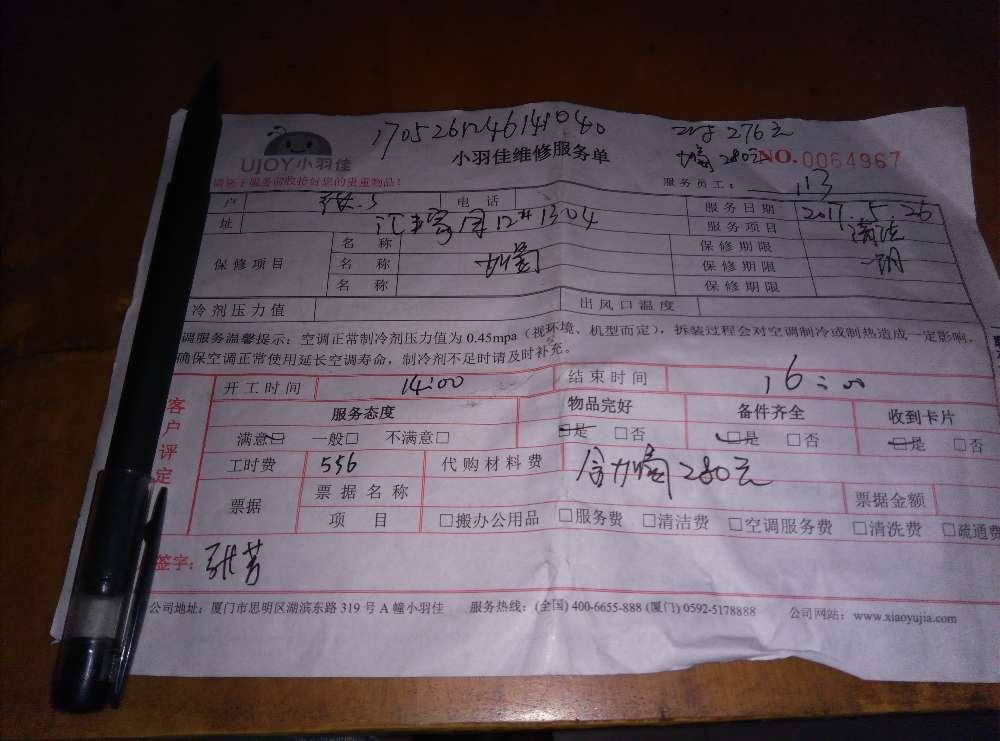 1705261246141040
276元
280元
UJOY小羽佳
小羽佳维修服务单
NO.0064967
请您于服务前收拾好您的贵重物品!
服务员工: 113
户 电话 服务日期 2017.5.26
址 12# 1304 服务项目 清洗
保修项目 名称 保修期限
名称 加氟 保修期限 一月
名称 保修期限
冷剂压力值 出风口温度
调服务温馨提示:空调正常制冷剂压力值为0.45mpa(视环境、机型而定),拆装过程会对空调制冷或制热造成一定影响,
确保空调正常使用延长空调寿命,制冷剂不足时请及时补充。
客户评定
开工时间 14:00 结束时间 16:00
服务态度 物品完好 备件齐全 收到卡片
满意□ 一般□ 不满意□ □是 □否 □是 □否 □是 □否
工时费 556 代购材料费 含加氟280元
票据 票据名称 票据金额
项目 □搬办公用品 □服务费 □清洁费 □空调服务费 □清洗费 □疏通费
签字: 张芳
公司地址:厦门市思明区湖滨东路319号A幢小羽佳 服务热线:(全国)400-6655-888 (厦门)0592-5178888 公司网站:www.xiaoyujia.com